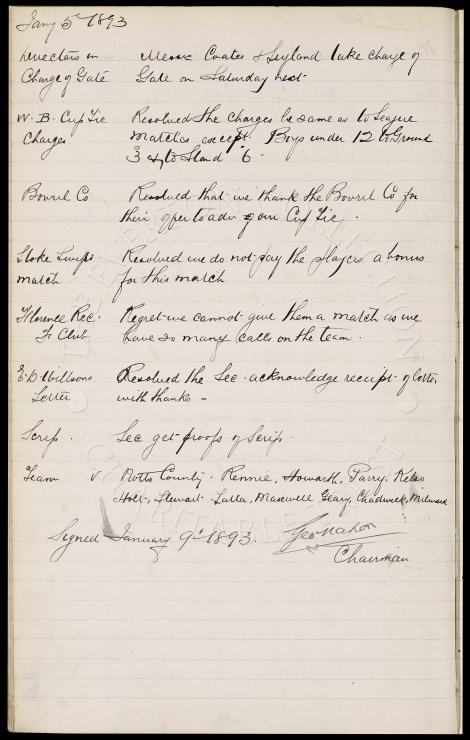 Jany 5th 1893
Directors in Messrs Coates & Leyland take charge of
Charge of Gate Gate on Saturday next
W. B. Cup Tie Resolved the Charges be same as to League
Charges Matches except Boys under 12 to Ground
3d & to Stand 6
Bovril Co Resolved that we thank the Bovril Co for
their offer to adv your Cup Tie.
Stoke Swifts Resolved we do not pay the players a bonus
match for this match
Florence Rec. Regret we cannot give them a match as we
Ft Club have so many calls on the team.
E. D. Willsons Resolved the Sec. acknowledge receipt of letter
Letter with thanks -
Scrip. Sec get proofs of Scrip.
Team v Notts County. Rennie, Howarth, Parry, Kelso
Holt, Stewart. Latta, Maxwell Geary, Chadwick, Milward
Signed January 9th 1893. Geo Mahon
Chairman
EVERTON COLLECTION
CHARITABLE TRUST